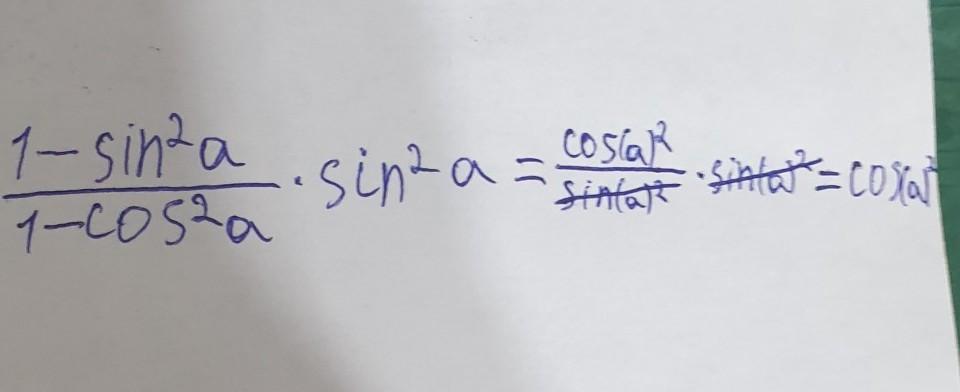 1-sin²a/1-cos²a · sin²a = cos(a)²/sin(a)² · sin(a)² = cos(a)²